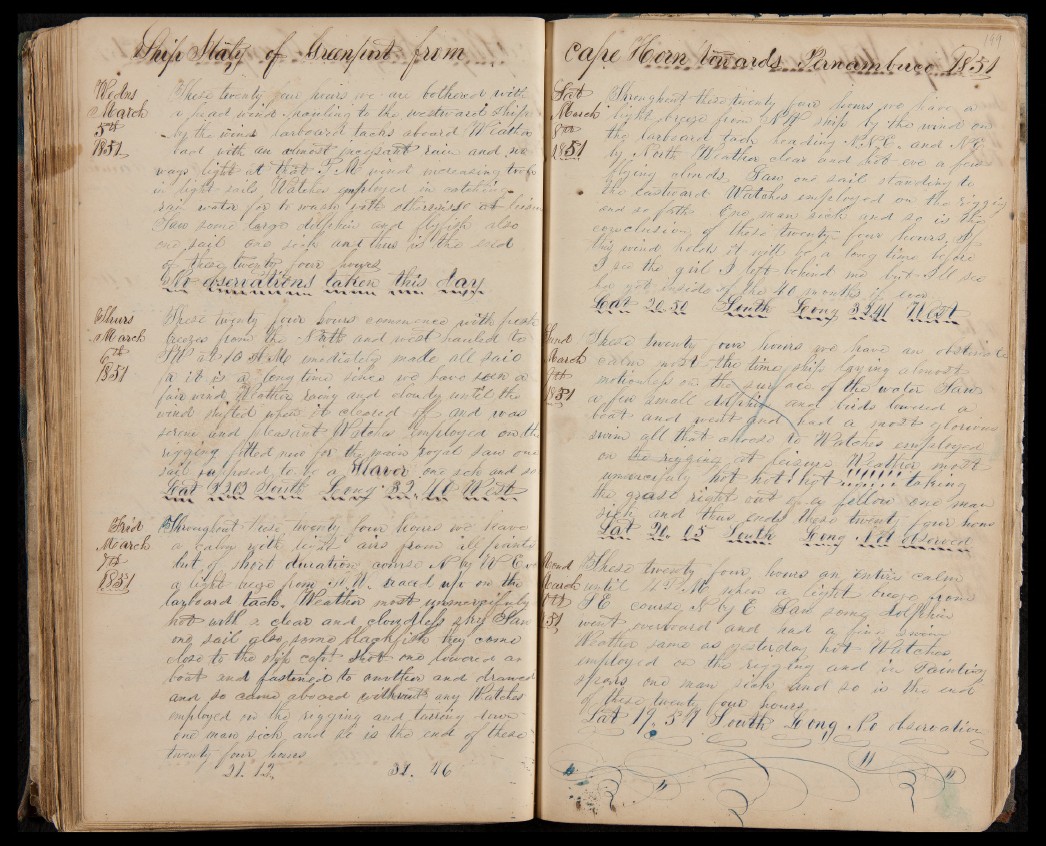 Ship Italy of Greenport from
Wedns
March
5th
1851
These twenty four hours we are bothered with
a head wind hauling to the westward Ship
by the wind larboard tacks aboard Weather
bad with an almost incessant rain and
ways light at that P.M. wind increasing took
in light sails, Watches employed in catching
rain water for to wash with otherwise at leisure
Saw some large dolphin and flyfish also
one sail one sick and thus is the end
of these twenty four hours
No observations taken this day
Thurs
March
6th
1851
These twenty four hours commence with fresh
breezes from the North and west hauled to
SW at 10 A.M. imediately made all sail
for it is a long time since we have seen a
fair wind, Weather rainy and cloudy until the
wind shifted when it cleared off and was
serene and pleasant Watches employed on the
rigging fitted new for the main royal saw one
sail supposed to be a Slaver one sick and so
Lat South Long 32 West
Frid
March
7th
1851
Throughout these twenty four hours we have
a calm with light airs from all points
but of short duration course N by W
a light breeze from naad up on the
larboard tack. Weather most unmercifully
hot with a clear and cloudless sky Saw
one sail also some blackfish they come
close to the ship capt shot one lowered a
boat and fastened to another and drawed
and so came aboard without any Watches
employed on the rigging and tarring down
one man sick, and so is the end of these
twenty four hours
21. 12. 32. 46
Cape Horn towards Pernambuco 1851
149
Sat
March
8th
1851
Throughout these twenty four hours we have a
light breeze from ship by the wind on
the larboard tack heading and NE
by North Weather clear and hot one a few
flying clouds, Saw one sail standing to
the eastward Watches employed on the rigging
and so forth One man sick and so is the
conclusion of these twenty four hours. If
this wind holds it will be a long time before
I see the girl I left behind me but I'll see
her yet inside of the 40 months if ever
Lat 20. 50 South Long 32.41 West
Sund
March
9th
1851
These twenty four hours we have an obstinate
calm most the time ship laying almost
motionless on the surface of the water Saw
a few small dolphin and birds lowered a
boat and went and had a most glorious
swim all that choose to Watches employed
on the rigging at leisure Weather most
unmercifuly hot hot! hot !!!!!! taking
the grease right out of a fellow one man
sick and thus ends these twenty four hours
Lat 20. 05 South Long Not observed
Mond
March
10th
1851
These twenty four hours an entire calm
until M when a light breeze from
SE course N by E Saw some dolphin
went overboard and had a fine swim
Weather same as yesterday hot Watches
employed on the rigging and in Painting
spars one man sick and so is the end
of these twenty four hours
Lat 19. 59 South Long No observation